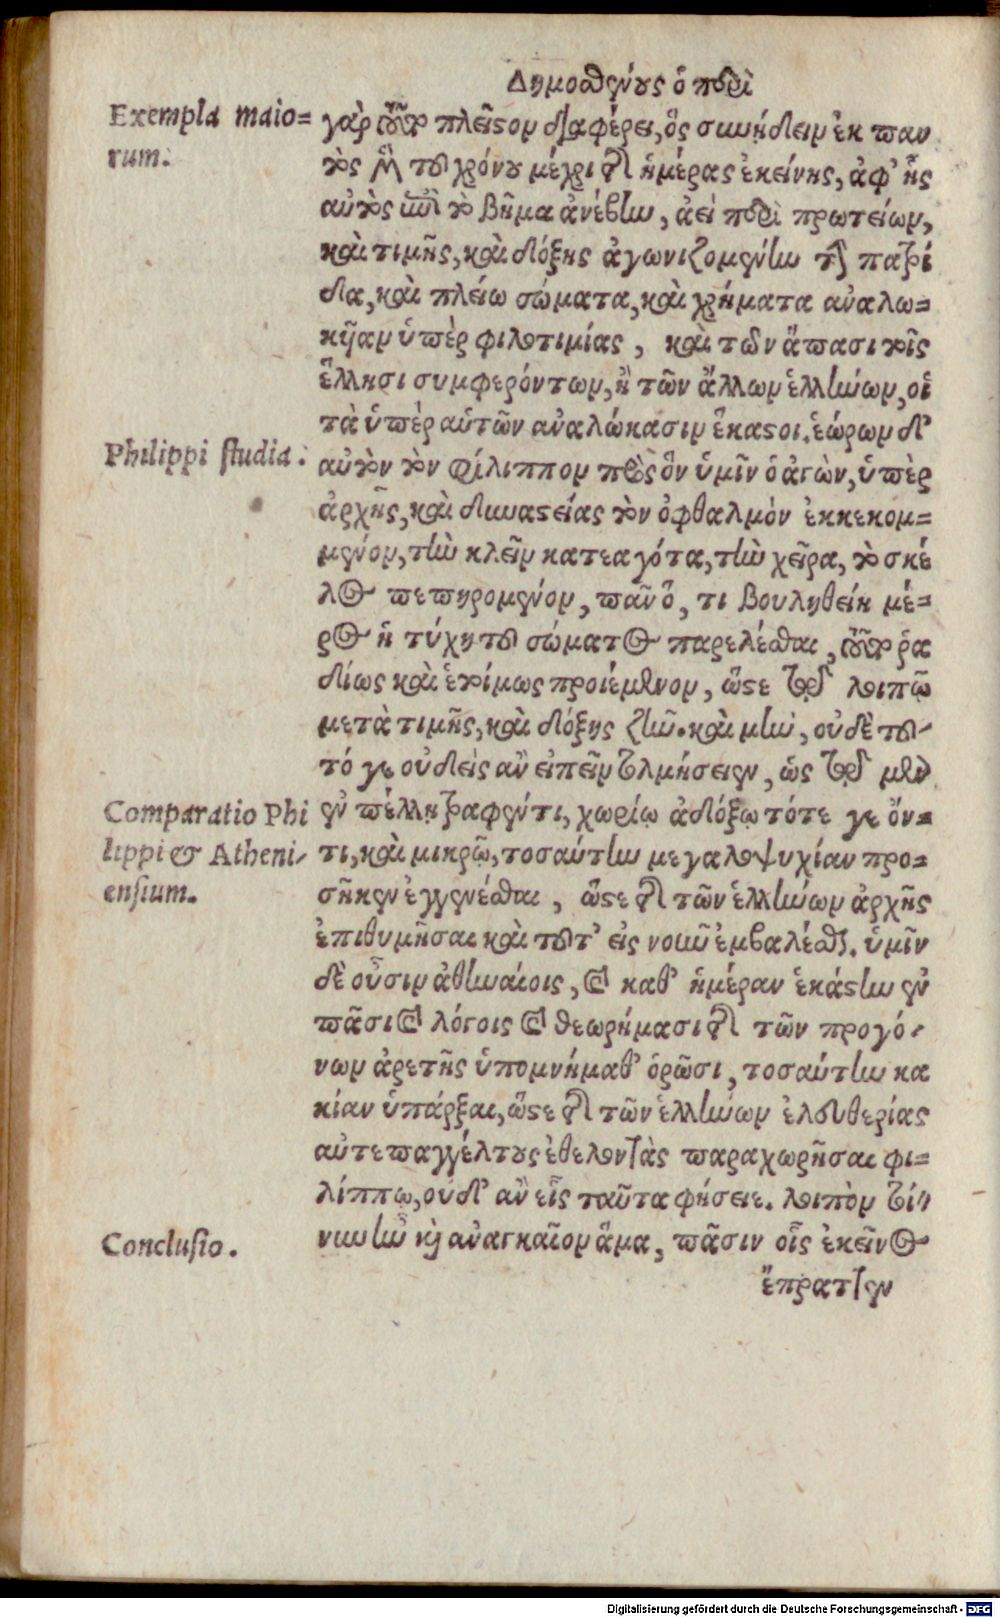 Δημοσθένους ὁ περὶ
Exempla maio=
rum.
γὰρ τοῦτο πλεῖστον διαφέρει, ὃς συνῄδειν ἐκ παν
τὸς τοῦ χρόνου μέχρι τῆς ἡμέρας ἐκείνης, ἀφ' ἧς
αὐτὸς ἐπὶ τὸ βῆμα ἀνέβην, ἀεὶ περὶ πρωτείων,
καὶ τιμῆς, καὶ δόξης ἀγωνιζομένην τὴν πατρί
δα, καὶ πλείω σώματα, καὶ χρήματα ἀναλω=
κῆαν ὑπὲρ φιλοτιμίας, καὶ τῶν ἅπασι τοῖς
ἕλλησι συμφερόντων, ἢ τῶν ἄλλων ἑλλήνων, οἱ
τὰ ὑπὲρ αὑτῶν ἀναλώκασιν ἕκαστοι. ἑώρων δ'
Philippi studia.
αὐτὸν τὸν φίλιππον πρὸς ὃν ὑμῖν ὁ ἀγὼν, ὑπὲρ
ἀρχῆς, καὶ δυναστείας τὸν ὀφθαλμὸν ἐκκεκομ=
μένον, τὴν κλεῖν κατεαγότα, τὴν χεῖρα, τὸ σκέ
λος πεπηρομένον, πᾶν ὅ, τι βουληθείη μέ=
ρος ἡ τύχη τοῦ σώματος παρελέσθαι, τοῦτο ῥα
δίως καὶ ἑτοίμως προιέμενον, ὥστε τῷ λοιπῷ
μετὰ τιμῆς, καὶ δόξης ζῆν. καὶ μὴν, οὐδὲ του-
τό γε οὐδεὶς ἂν εἰπεῖν τολμήσειεν, ὡς τῷ μὲν
Comparatio Phi
lippi & Atheni-
ensium.
ἐν πέλλῃ τραφέντι, χωρίῳ ἀδόξῳ τότε γε ὄν=
τι, καὶ μικρῷ, τοσαύτην μεγαλοψυχίαν προ=
σῆκεν ἐγγενέσθαι, ὥστε τῆς τῶν ἑλλήνων ἀρχῆς
ἐπιθυμῆσαι καὶ τοῦτ' εἰς νοῦν ἐμβαλέσθαι. ὑμῖν
δὲ οὖσιν ἀθηναίοις, καὶ καθ' ἡμέραν ἑκάστην ἐν
πᾶσι καὶ λόγοις καὶ θεωρήμασι τῆς τῶν προγό-
νων ἀρετῆς ὑπομνήμαθ' ὁρῶσι, τοσαύτην κα
κίαν ὑπάρξαι, ὥστε τῆς τῶν ἑλλήνων ἐλευθερίας
αὐτεπαγγέλτους ἐθελοντὰς παραχωρῆσαι φι=
λίππῳ, οὐδ' ἂν εἷς ταῦτα φήσειε. λοιπὸν τοί-
Conclusio.
νυν ἦν καὶ ἀναγκαῖον ἅμα, πᾶσιν οἷς ἐκεῖνος
ἔπραττεν